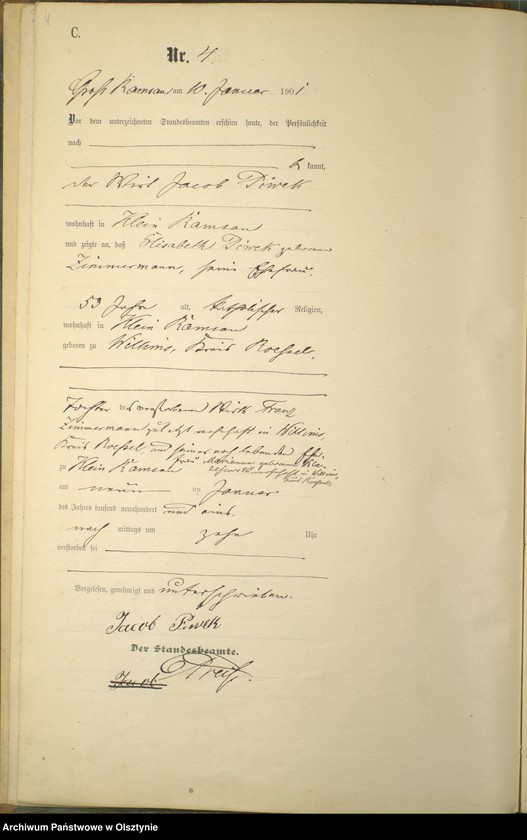 C.
Nr. 4
Groß Ramsau am 10. Januar 1901.
Vor dem unterzeichneten Standesbeamten erschien heute, der Persönlichkeit
nach
be kannt,
der Wirt Jacob Piwek
wohnhaft in Klein Ramsau
und zeigte an, daß Elisabeth Piwek geborene
Zimmermann, seine Ehefrau,
53 Jahre alt, katholischer Religion,
wohnhaft in Klein Ramsau
geboren zu Willims, Kreis Roessel,
Tochter des verstorbenen Wirts Franz
Zimmermann zuletzt wohnhaft in Willims,
Kreis Roessel, und seiner noch lebenden Ehe-
frau Marianna geborene
wohnhaft in Willims,
Kreis Roessel
zu Klein Ramsau
am neun ten Januar
des Jahres tausend neunhundert und eins
nach mittags um zehn Uhr
verstorben sei
Vorgelesen, genehmigt und unterschrieben.
Jacob Piwek
Der Standesbeamte.
Jacob
Archiwum Państwowe w Olsztynie